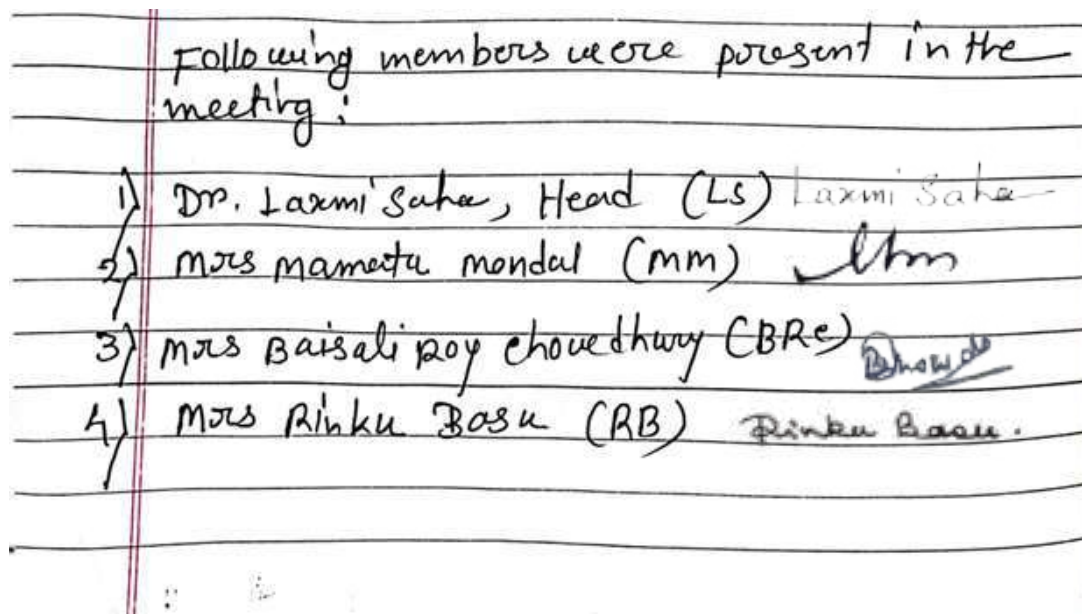 Following members were present in the
meeting:
1) Dr. Laxmi Saha, Head (LS) Laxmi Saha
2) Mrs Mamata Mondal (MM)
3) Mrs Baisali Roy Chowdhury (BRC)
4) Mrs Rinku Basu (RB) Rinku Basu.